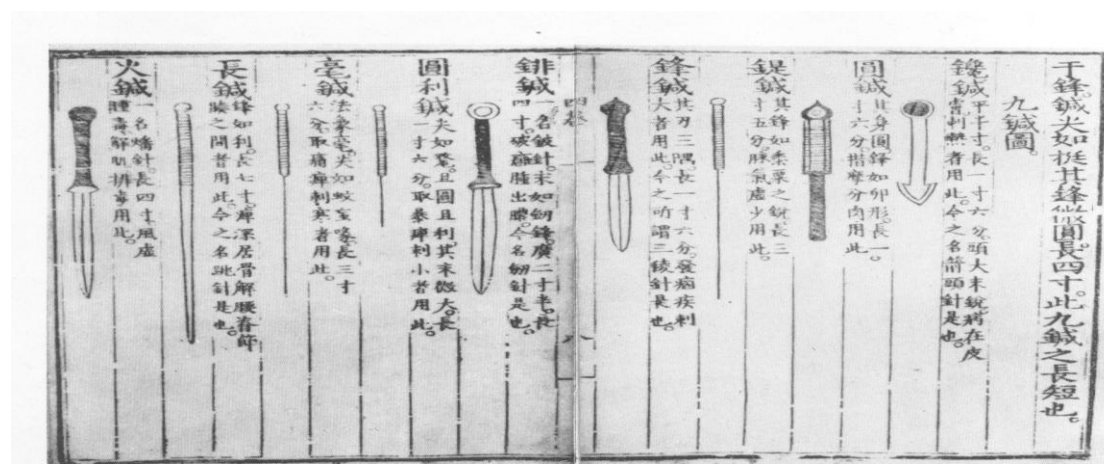 于鋒鍼尖如挺其鋒微圓長四寸。此九鍼之長短也。
九鍼圖。
鑱鍼 平半寸。長一寸六分。頭大末銳。病在皮
膚刺熱者用此。今之名箭頭針是也。
圓鍼 其身圓鋒如卵形。長一
寸六分。揩摩分肉用此
鍉鍼 其鋒如黍粟之銳。長三
寸五分。脉氣虛少用此。
鋒鍼 其刃三隅。長一寸六分。發痼疾刺
大者用此。今之所謂三稜針是也。
四卷
八
鍼 一名鈹針。末如劒鋒。廣二寸半。長
四寸。破癰腫出膿。今名劒針是也。
圓利鍼 尖如氂。且圓且利。其末微大。長
一寸六分。取暴痺刺小者用此。
毫鍼 法象毫。尖如蚊虻喙。長三寸
六分。取痛痺刺寒者用此。
長鍼 鋒如利。長七寸。痺深居骨解腰脊節
腠之間者用此。今之名跳針是也。
火鍼 一名燔針。長四寸。風虛
腫毒解肌排毒用此。